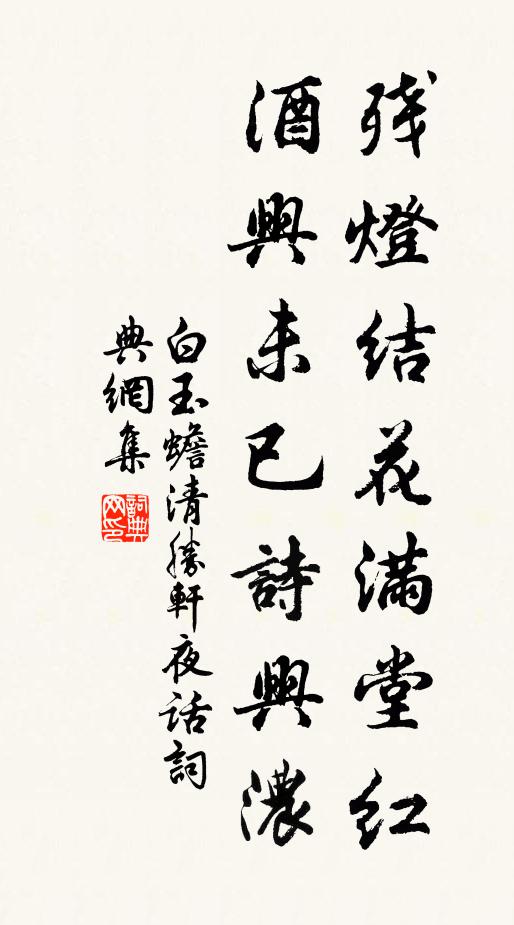 残燈結花满堂红
酒興未已詩興濃
白玉蟾清勝軒夜话詞
典網集
詞典网印